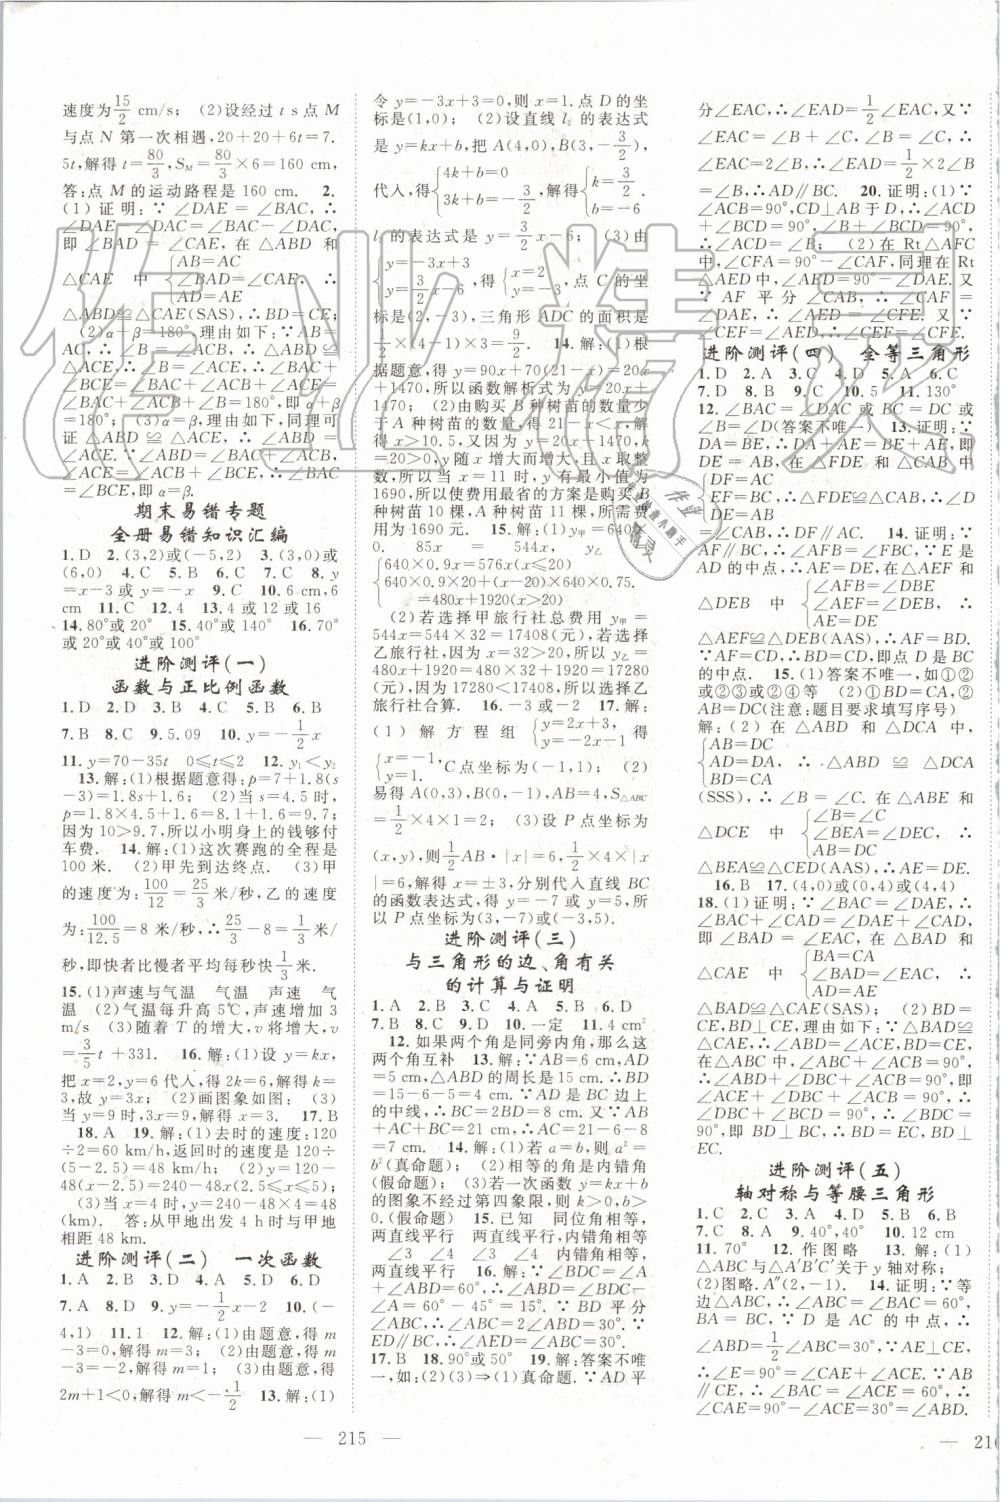 速度为15/2 cm/s; (2)设经过 t s 点 M
与点 N 第一次相遇,20+20+6t=7.
5t,解得 t=80/3,S_M=80/3×6=160 cm,
答:点 M 的运动路程是 160 cm. 2.
(1)证明:∵∠DAE=∠BAC,∴
∠DAE-∠DAC=∠BAC-∠DAC,
即∠BAD=∠CAE,在△ABD 和
△CAE 中{AB=AC ∠BAD=∠CAE, ∴ AD=AE
△ABD≌△CAE(SAS),∴BD=CE;
(2)α+β=180°,理由如下:∵△ABD≌
△ACE,∴∠B=∠ACE,∴∠BCE=
∠ACB+∠ACE=∠ACB+∠B,
∵∠BAC+∠B+∠ACB=180°,∴α+β=
180°; (3)α=β,理由如下,同理可
证△ABD≌△ACE,∴∠ABD=
∠ACE=∠ACB+∠BCE,∵∠ABD=
∠BAC+∠ACB,∴∠BAC+∠ACB=
∠ACB+∠BCE,即α=β.
期末易错专题
全册易错知识汇编
1.D 2.(3,2)或(-5,2) 3.(3,0)或
(6,0) 4.C 5.B 6.C 7.C 8.y
=x-3或y=-x 9.C 10.6 cm或12
cm 11.C 12.4 13.4或12或16
14.80°或20° 15.40°或140° 16.70°
或20°或40°或100°
进阶测评(一)
函数与正比例函数
1.D 2.D 3.B 4.C 5.B 6.B
7.B 8.C 9.5,09 10.y=-1/2x
11.y=70-35t 0≤t≤2 12.y₁<y₂
13.解:(1)根据题意得:p=7+1.8(s
-3)=1.8s+1.6; (2)当s=4.5时,
p=1.8×4.5+1.6=8.1+1.6=9.7;
因为10>9.7,所以小明身上的钱够付
车费. 14.解:(1)这次赛跑的全程是
100米. (2)甲先到达终点. (3)甲
的速度为:100/12=25/3米/秒,乙的速度
为:100/12.5=8米/秒,∴25/3-8=1/3米/秒,
即快者比慢者平均每秒快1/3米.
15.(1)声速与气温 气温 声速 气
温 (2)气温每升高5℃,声速增加3
m/s (3)随着T的增大,v将增大,v
=3/5t+331. 16.解:(1)设y=kx,
把x=2,y=6代入,得2k=6,解得k=
3,故y=3x; (2)画图象如图; (3)
当y=9时,3x=9,解得x=3. 17.B
18.A 19.解:(1)去时的速度:120
÷2=60 km/时,返回时的速度是120÷
(5-2.5)=48 km/时; (2)y=120-
48(x-2.5)=240-48x(2.5≤x≤5);
(3)当x=4时,y=240-48×4=48
(km). 答:从甲地出发4 h时与甲地
相距48 km.
进阶测评(二) 一次函数
1.A 2.B 3.D 4.C 5.C 6.D
7.A 8.D 9.y=-1/2x-2 10.(-
4,1) 11.1 12.解:(1)由题意,得m
-3=0,解得m=3; (2)由题意,得m
-3=-2,解得m=1; (3)由题意,得
2m+1<0,解得m<-1/2 13.解:(1)
令y=-3x+3=0,则x=1.点D的坐
标是(1,0); (2)设直线l₂的表达式
是y=kx+b,把A(4,0),B(3,-3/2)
代人,得{4k+b=0 3k+b=-3/2,解得{k=3/2 b=-6
l₂的表达式是y=3/2x-6; (3)由
{y=-3x+3 y=3/2x-6,得{x=2 y=-3,点C的坐
标是(2,-3),三角形ADC的面积是
1/2×(4-1)×3=9/2. 14.解:(1)根
据题意,得y=90x+70(21-x)=20x
+1470,所以函数解析式为y=20x+
1470; (2)由购买B种树苗的数量少
于A种树苗的数量,得21-x<x,解
得x>10.5,又因为y=20x+1470,k
=20>0,y随x增大而增大,且x取整
数,所以当x=11时,y有最小值为
1690,所以使费用最省的方案是购买B
种树苗10棵,A种树苗11棵,所需要
费用为1690元. 15.解:(1)y甲=640×
0.85x=544x,y乙=
{640×0.9x=576x(x≤20)
640×0.9×20+640×0.9×0.75.
=480x+1920(x>20)
(2)若选择甲旅行社总费用y甲=
544x=544×32=17408(元),若选择
乙旅行社,因为x=32>20,所以y乙=
480x+1920=480×32+1920=17280
(元),因为17280<17408,所以选择乙
旅行社合算. 16.-3或-2 17.解:
(1)解方程组{y=2x+3, y=-2x-1得
{x=-1, y=1,C点坐标为(-1,1); (2)
易得A(0,3),B(0,-1),AB=4,S△ABC
=1/2×4×1=2; (3)设P点坐标为
(x,y),则1/2AB·|x|=6,1/2×4×|x
|=6,解得x=±3,分别代人直线BC
的函数表达式,得y=-7或y=5,所
以P点坐标为(3,-7)或(-3,5).
进阶测评(三)
与三角形的边、角有关
的计算与证明
1.A 2.B 3.C 4.A 5.B 6.D
7.C 8.C 9.D 10.一定 11.4 cm²
12.如果两个角是同旁内角,那么这
两个角互补 13.解:∵AB=6 cm,AD
=5 cm,△ABD的周长是15 cm,∴BD=
15-6-5=4 cm,∵AD是BC边上
的中线,∴BC=2BD=8 cm.又∵AB
+AC+BC=21 cm,∴AC=21-6-8
=7 cm. 14.解:(1)若a=b,则a²=
b²(真命题); (2)相等的角是内错角
(假命题); (3)若一次函数y=kx+b
的图象不经过第四象限,则k>0,b>
0.(假命题) 15.已知 同位角相等,
两直线平行 两直线平行,内错角相等
∠3 ∠4 ∠3 ∠4 内错角相等,
两直线平行 16.解:∵∠BDC=∠A
+∠ABD,∴∠ABD=∠BDC-∠A
=60°-45°=15°.∵BD平分
∠ABC,∴∠ABC=2∠ABD=30°.∵
ED∥BC,∴∠AED=∠ABC=30°.
17.B 18.90°或50° 19.解:答案不唯
一,如:(2)(3)⇒(1) 证明:∵AD平
分∠EAC,∴∠EAD=1/2∠EAC,又∵
∠EAC=∠B+∠C,∠B=∠C,∴
∠EAC=2∠B,∴∠EAD=1/2×2∠B
=∠B,∴AD∥BC. 20.证明:(1)∵
∠ACB=90°,CD⊥AB于D,∴∠ACD
+∠BCD=90°,∠B+∠BCD=90°,
∴∠ACD=∠B; (2)在Rt△AFC
中,∠CFA=90°-∠CAF,同理在Rt
△AED中,∠AED=90°-∠DAE.又
∵AF平分∠CAB,∴∠CAF=
∠DAE,∴∠AED=∠CFE.又∵
∠CEF=∠AED,∴∠CEF=∠CFE.
进阶测评(四) 全等三角形
1.D 2.A 3.C 4.D 5.A 6.C
7.D 8.B 9.C 10.5 11.130°
12.∠BAC=∠DAC或BC=DC或
∠B=∠D(答案不唯一) 13.证明:∵
DA=BE,∴DA+AE=BE+AE,即
DE=AB,在△FDE和△CAB中,
{DF=AC EF=BC,∴△FDE≌△CAB(SSS),∴∠D DE=AB
=∠CAB,∴DF∥AC. 14.证明:
∵AF∥BC,∴∠AFB=∠FBC,∵E是
AD的中点,∴AE=DE,在△AEF和
△DEB中{∠AFB=∠DBE ∠AEF=∠DEB,∴ AE=DE
△AEF≌△DEB(AAS),∴AF=BD.
∵AF=DC,∴BD=DC,即点D是BC
的中点. 15.(1)答案不唯一,如①②
或②③或②④等 (2)①BD=CA,②
AB=DC(注意:题目要求填写序号)
解:(2)在△ABD和△DCA中,
{AB=DC AD=DA,∴△ABD≌△DCA BD=CA
(SSS),∴∠B=∠C.在△ABE和
△DCE中{∠B=∠C ∠BEA=∠DEC,∴ AB=DC
△BEA≌△CED(AAS),∴AE=DE.
16.B 17.(4,0)或(0,4)或(4,4)
18.(1)证明:∵∠BAC=∠DAE,∴
∠BAC+∠CAD=∠DAE+∠CAD,
即∠BAD=∠CAE,在△BAD和
△CAE中{BA=CA ∠BAD=∠CAE,∴ AD=AE
△BAD≌△CAE(SAS); (2)BD=
CE,BD⊥CE,理由如下:由(1)知,
△BAD≌△CAE,∴BD=CE,∵
在△ABC中,∠ABC+∠ACB=90°,
∴∠ABD+∠DBC+∠ACB=90°,
∵∠ABD=∠ACE,∴∠ACE+
∠DBC+∠ACB=90°,即∠DBC+
∠BCE=90°,∴∠BDC=90°,
即BD⊥DC,∴BD=EC,BD⊥
EC.
进阶测评(五)
轴对称与等腰三角形
1.C 2.C 3.A 4.D 5.B 6.B
7.C 8.A 9.40°,40° 10.12 cm
11.70° 12.作图略 13.解:(1)
△ABC与△A′B′C′关于y轴对称;
(2)图略.A″(2,-1). 14.证明:∵等
边△ABC,∴∠ABC=∠ACB=60°,
BA=BC,∵D是AC的中点,∴
∠ABD=1/2∠ABC=30°,∵AE⊥EC,
∴∠E=90°=∠CAE+∠ACE.∵AB
∥CE,∴∠BAC=∠ACE=60°,∴
∠CAE=90°-∠ACE=30°=∠ABD.
— 215 —